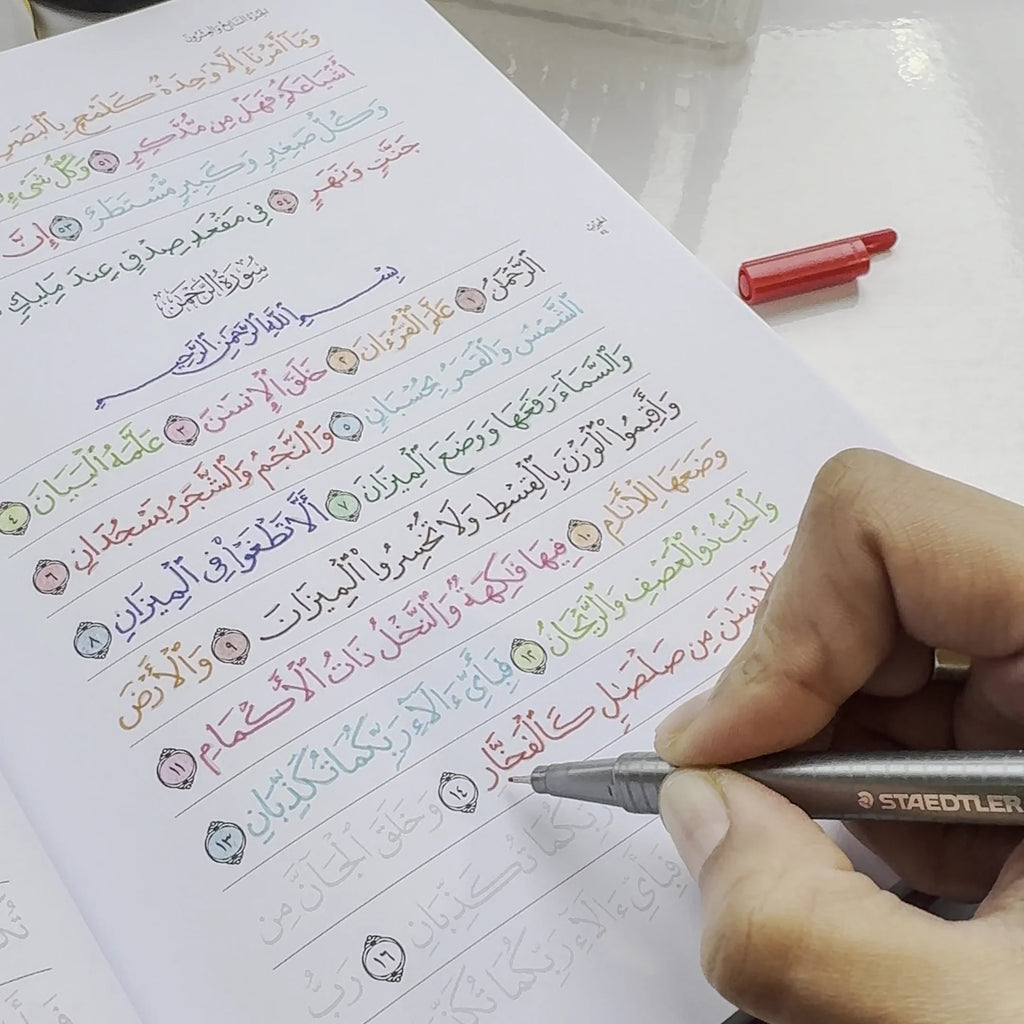 وَمَآ أَمْرُنَآ إِلَّا وَٰحِدَةٌ كَلَمْحٍۭ بِٱلْبَصَرِ
أَشْيَاعَكُمْ فَهَلْ مِن مُّدَّكِرٍ ٥١ وَكُلُّ شَىْءٍ
وَكُلُّ صَغِيرٍ وَكَبِيرٍ مُّسْتَطَرٌ ٥٣ إِنَّ
جَنَّٰتٍ وَنَهَرٍ ٥٤ فِى مَقْعَدِ صِدْقٍ عِندَ مَلِيكٍ
سُورَةُ الرَّحْمَٰن
بِسْمِ ٱللَّهِ ٱلرَّحْمَٰنِ ٱلرَّحِيمِ
ٱلرَّحْمَٰنُ ١ عَلَّمَ ٱلْقُرْءَانَ ٢ خَلَقَ ٱلْإِنسَٰنَ ٣ عَلَّمَهُ ٱلْبَيَانَ ٤
ٱلشَّمْسُ وَٱلْقَمَرُ بِحُسْبَانٍ ٥ وَٱلنَّجْمُ وَٱلشَّجَرُ يَسْجُدَانِ ٦
وَٱلسَّمَآءَ رَفَعَهَا وَوَضَعَ ٱلْمِيزَانَ ٧ أَلَّا تَطْغَوْا۟ فِى ٱلْمِيزَانِ ٨
وَأَقِيمُوا۟ ٱلْوَزْنَ بِٱلْقِسْطِ وَلَا تُخْسِرُوا۟ ٱلْمِيزَانَ ٩ وَٱلْأَرْضَ
وَضَعَهَا لِلْأَنَامِ ١٠ فِيهَا فَٰكِهَةٌ وَٱلنَّخْلُ ذَاتُ ٱلْأَكْمَامِ ١١
وَٱلْحَبُّ ذُو ٱلْعَصْفِ وَٱلرَّيْحَانُ ١٢ فَبِأَىِّ ءَالَآءِ رَبِّكُمَا تُكَذِّبَانِ ١٣
ٱلْإِنسَٰنَ مِن صَلْصَٰلٍ كَٱلْفَخَّارِ ١٤ وَخَلَقَ ٱلْجَآنَّ مِن
رَبِّكُمَا تُكَذِّبَانِ ١٦ رَبُّ
فَبِأَىِّ ءَالَآءِ رَبِّكُمَا
STAEDTLER